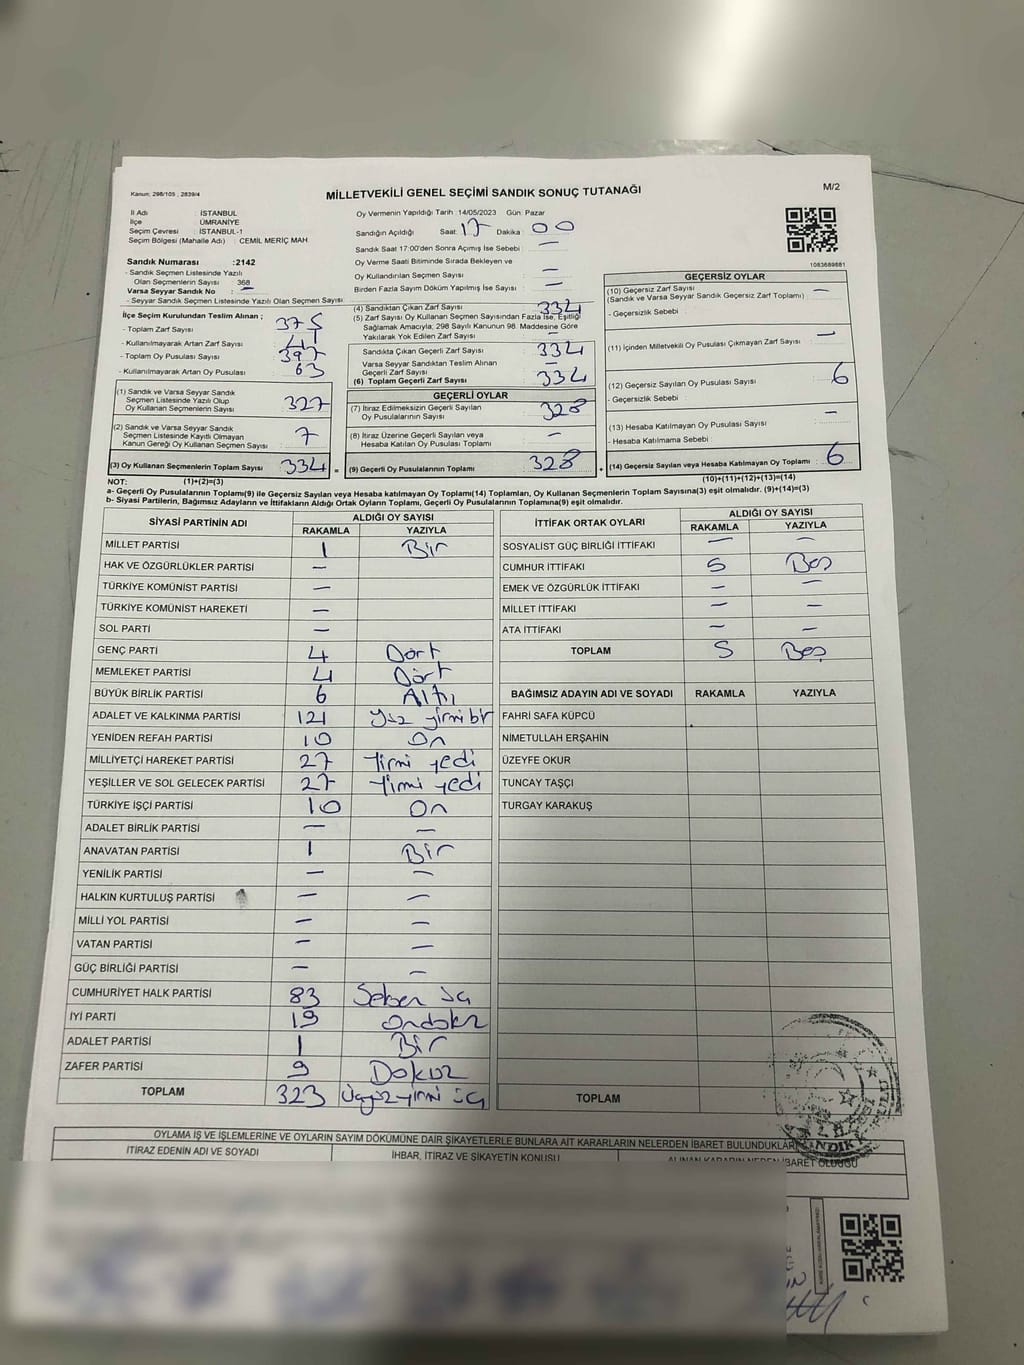 Kanun; 298/105 , 2839/4
MİLLETVEKİLİ GENEL SEÇİMİ SANDIK SONUÇ TUTANAĞI
M/2
İl Adı : İSTANBUL
İlçe : ÜMRANİYE
Seçim Çevresi : İSTANBUL-1
Seçim Bölgesi (Mahalle Adı) : CEMİL MERİÇ MAH
Sandık Numarası :2142
- Sandık Seçmen Listesinde Yazılı
Olan Seçmenlerin Sayısı : 368
Varsa Seyyar Sandık No : —
- Seyyar Sandık Seçmen Listesinde Yazılı Olan Seçmen Sayısı
Oy Vermenin Yapıldığı Tarih :14/05/2023 Gün: Pazar
Sandığın Açıldığı Saat: 17 Dakika 00
Sandık Saat 17:00'den Sonra Açılmış İse Sebebi : —
Oy Verme Saati Bitiminde Sırada Bekleyen ve
Oy Kullandırılan Seçmen Sayısı : —
Birden Fazla Sayım Döküm Yapılmış İse Sayısı : —
1083689881
İlçe Seçim Kurulundan Teslim Alınan ;
- Toplam Zarf Sayısı : 375
- Kullanılmayarak Artan Zarf Sayısı : 41
- Toplam Oy Pusulası Sayısı : 397
- Kullanılmayarak Artan Oy Pusulası : 63
(1) Sandık ve Varsa Seyyar Sandık
Seçmen Listesinde Yazılı Olup
Oy Kullanan Seçmenlerin Sayısı : 327
(2) Sandık ve Varsa Seyyar Sandık
Seçmen Listesinde Kayıtlı Olmayan
Kanun Gereği Oy Kullanan Seçmen Sayısı : 7
(3) Oy Kullanan Seçmenlerin Toplam Sayısı : 334 =
(4) Sandıktan Çıkan Zarf Sayısı : 334
(5) Zarf Sayısı Oy Kullanan Seçmen Sayısından Fazla İse, Eşitliği
Sağlamak Amacıyla; 298 Sayılı Kanunun 98. Maddesine Göre
Yakılarak Yok Edilen Zarf Sayısı : —
Sandıkta Çıkan Geçerli Zarf Sayısı : 334
Varsa Seyyar Sandıktan Teslim Alınan
Geçerli Zarf Sayısı : —
(6) Toplam Geçerli Zarf Sayısı : 334
GEÇERLİ OYLAR
(7) İtiraz Edilmeksizin Geçerli Sayılan
Oy Pusulalarının Sayısı : 328
(8) İtiraz Üzerine Geçerli Sayılan veya
Hesaba Katılan Oy Pusulası Toplamı : —
(9) Geçerli Oy Pusulalarının Toplamı : 328 +
GEÇERSİZ OYLAR
(10) Geçersiz Zarf Sayısı : —
(Sandık ve Varsa Seyyar Sandık Geçersiz Zarf Toplamı)
- Geçersizlik Sebebi :
(11) İçinden Milletvekili Oy Pusulası Çıkmayan Zarf Sayısı : —
(12) Geçersiz Sayılan Oy Pusulası Sayısı : 6
- Geçersizlik Sebebi :
(13) Hesaba Katılmayan Oy Pusulası Sayısı : —
- Hesaba Katılmama Sebebi :
(14) Geçersiz Sayılan veya Hesaba Katılmayan Oy Toplamı : 6
NOT: (1)+(2)=(3)
(10)+(11)+(12)+(13)=(14)
a- Geçerli Oy Pusulalarının Toplamı(9) ile Geçersiz Sayılan veya Hesaba katılmayan Oy Toplamı(14) Toplamları, Oy Kullanan Seçmenlerin Toplam Sayısına(3) eşit olmalıdır. (9)+(14)=(3)
b- Siyasi Partilerin, Bağımsız Adayların ve İttifakların Aldığı Ortak Oyların Toplamı, Geçerli Oy Pusulalarının Toplamına(9) eşit olmalıdır.
SİYASİ PARTİNİN ADI ALDIĞI OY SAYISI
RAKAMLA YAZIYLA
MİLLET PARTİSİ 1 Bir
HAK VE ÖZGÜRLÜKLER PARTİSİ —
TÜRKİYE KOMÜNİST PARTİSİ —
TÜRKİYE KOMÜNİST HAREKETİ —
SOL PARTİ —
GENÇ PARTİ 4 Dört
MEMLEKET PARTİSİ 4 Dört
BÜYÜK BİRLİK PARTİSİ 6 Altı
ADALET VE KALKINMA PARTİSİ 121 yüz yirmi bir
YENİDEN REFAH PARTİSİ 10 On
MİLLİYETÇİ HAREKET PARTİSİ 27 Yirmi yedi
YEŞİLLER VE SOL GELECEK PARTİSİ 27 Yirmi yedi
TÜRKİYE İŞÇİ PARTİSİ 10 On
ADALET BİRLİK PARTİSİ — —
ANAVATAN PARTİSİ 1 Bir
YENİLİK PARTİSİ — —
HALKIN KURTULUŞ PARTİSİ — —
MİLLİ YOL PARTİSİ — —
VATAN PARTİSİ — —
GÜÇ BİRLİĞİ PARTİSİ — —
CUMHURİYET HALK PARTİSİ 83 Seksen üç
İYİ PARTİ 19 Ondokuz
ADALET PARTİSİ 1 Bir
ZAFER PARTİSİ 9 Dokuz
TOPLAM 323 Üçyüzyirmi üç
İTTİFAK ORTAK OYLARI ALDIĞI OY SAYISI
RAKAMLA YAZIYLA
SOSYALİST GÜÇ BİRLİĞİ İTTİFAKI — —
CUMHUR İTTİFAKI 5 Beş
EMEK VE ÖZGÜRLÜK İTTİFAKI — —
MİLLET İTTİFAKI — —
ATA İTTİFAKI — —
TOPLAM 5 Beş
BAĞIMSIZ ADAYIN ADI VE SOYADI RAKAMLA YAZIYLA
FAHRİ SAFA KÜPCÜ
NİMETULLAH ERŞAHİN
ÜZEYFE OKUR
TUNCAY TAŞÇI
TURGAY KARAKUŞ
TOPLAM
OYLAMA İŞ VE İŞLEMLERİNE VE OYLARIN SAYIM DÖKÜMÜNE DAİR ŞİKAYETLERLE BUNLARA AİT KARARLARIN NELERDEN İBARET BULUNDUKLARI
İTİRAZ EDENİN ADI VE SOYADI İHBAR, İTİRAZ VE ŞİKAYETİN KONUSU ALINAN KARARIN NEDEN İBARET OLDUĞU